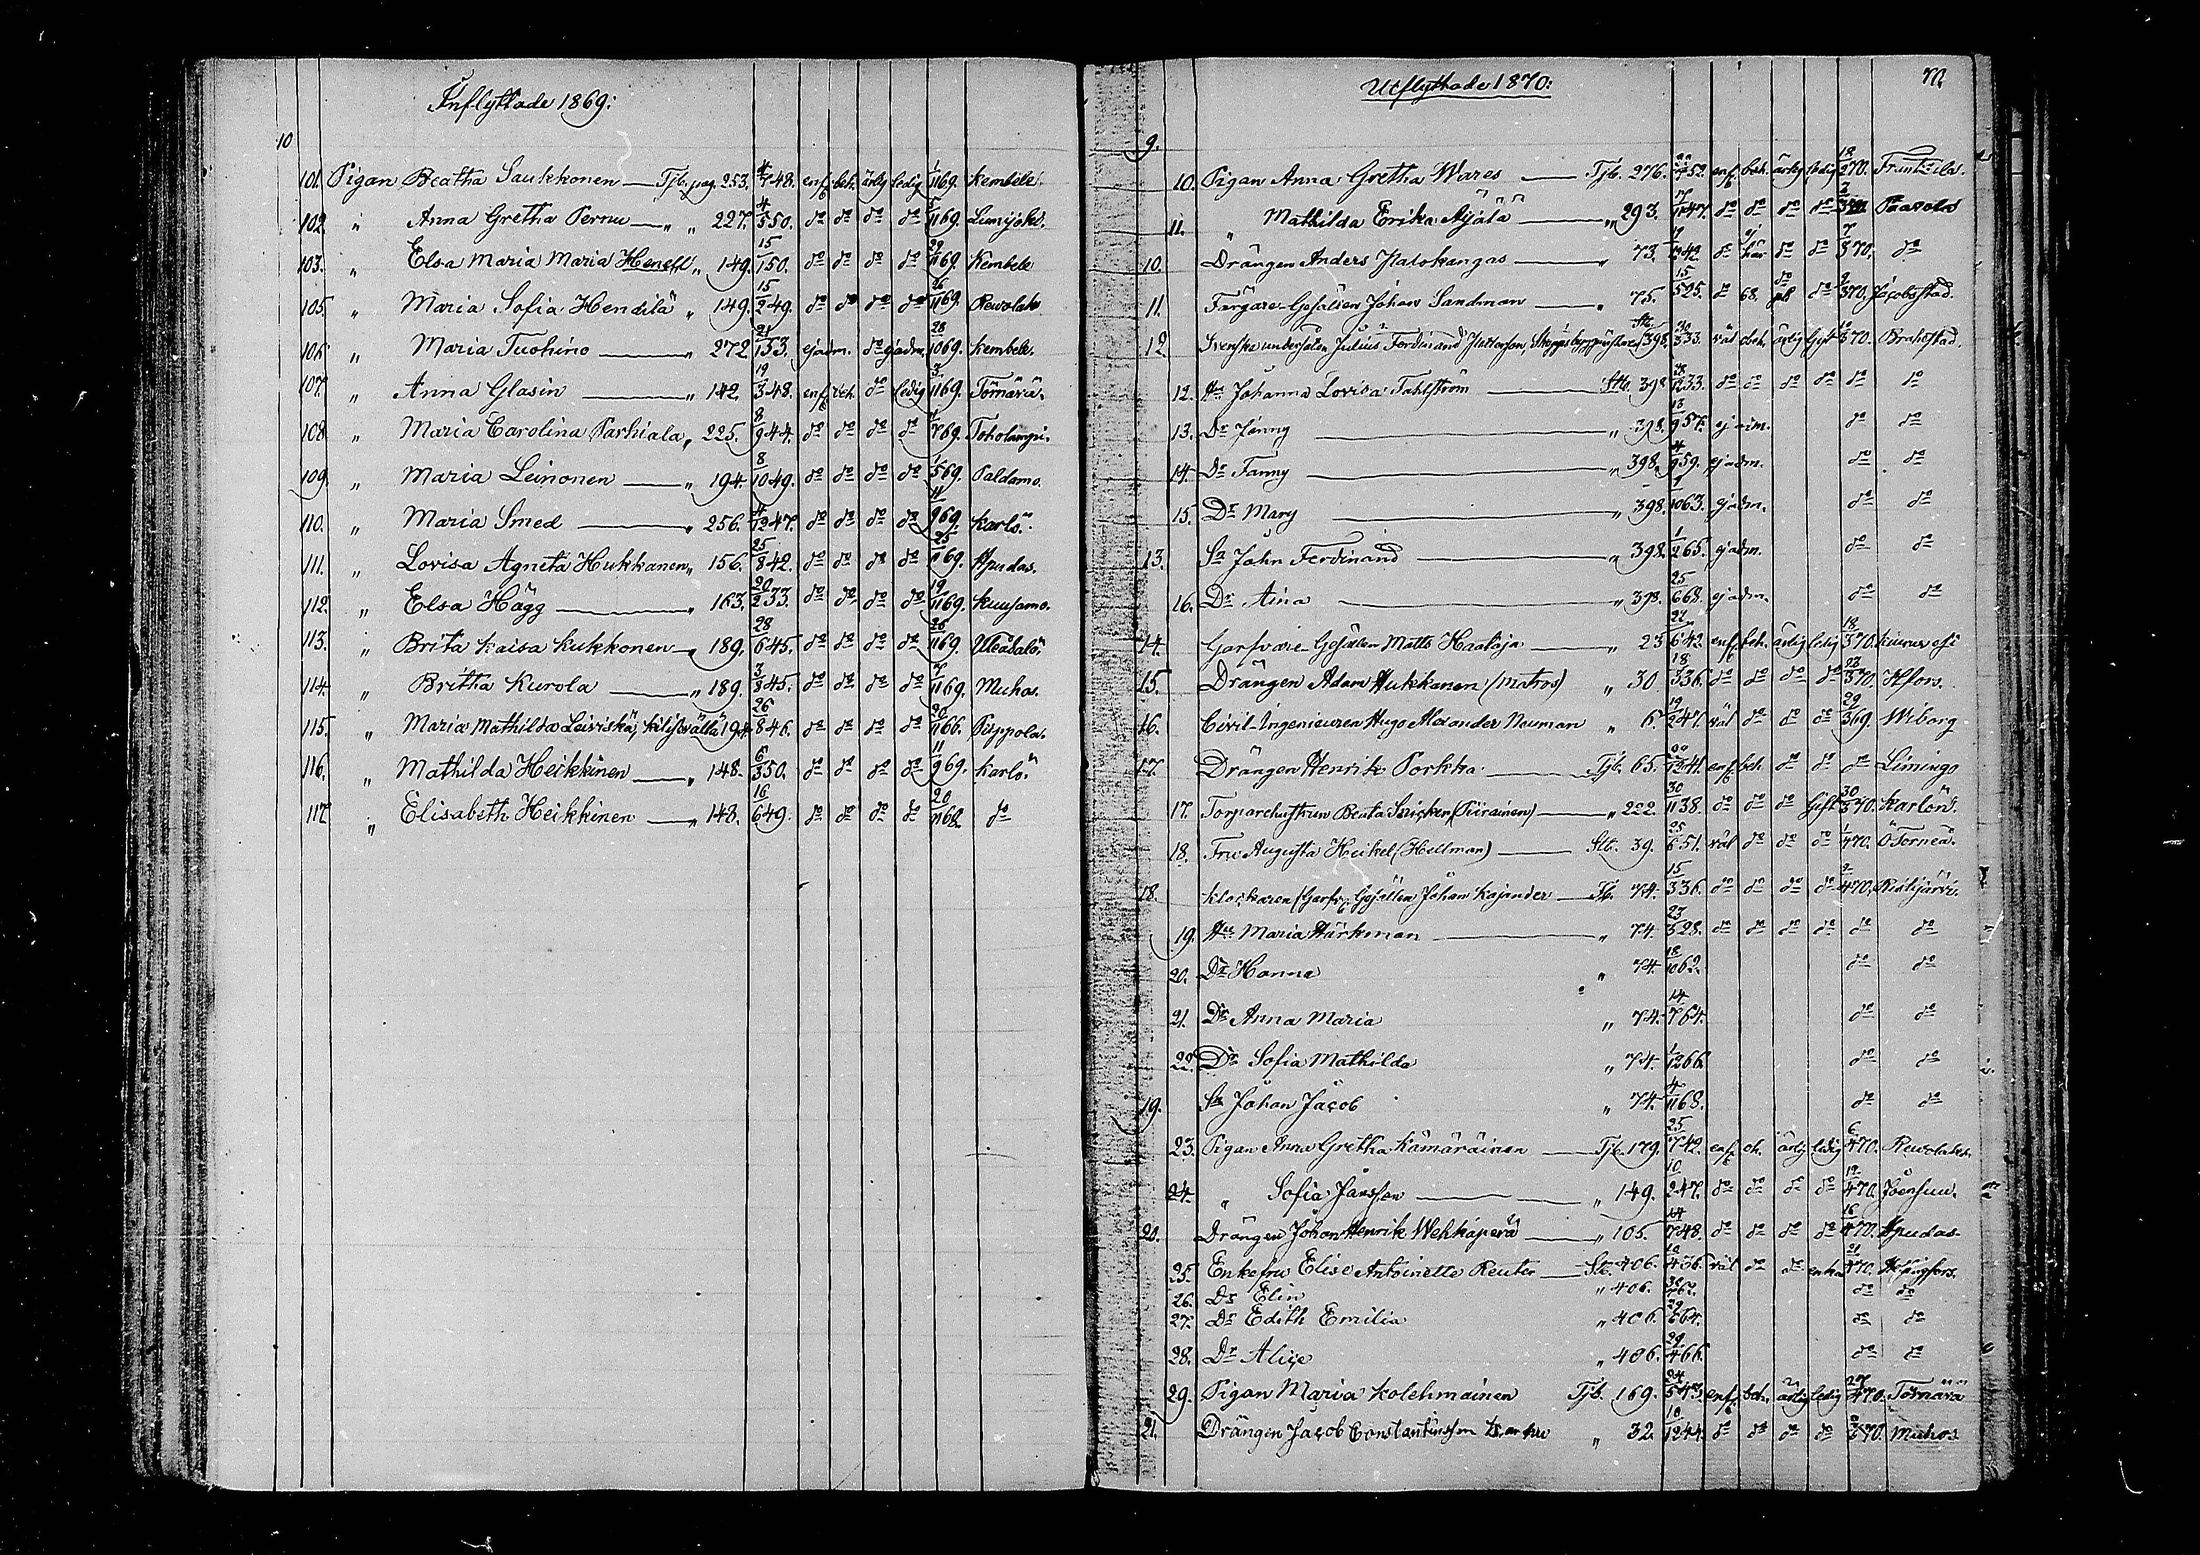 Inflyttade 1869:
10
101. Pigan Beatha Saukkonen — Tjb. pag. 253. 4/7 48. enf. beh. ärlig ledig 1/11 69. Kembele.
102. " Anna Gretha Pernu — " " 227. 4/5 50. do do do do 5/11 69. Limijoki.
103. " Elsa Maria Maria Henell " 149. 15/1 50. do do do do 29/11 69. Kembele
105. " Maria Sofia Hendilä " 149. 15/2 49. do do do do 26/11 69. Rewolaks
106. " Maria Tuohino — " 272 21/1 53. ej adm. do ej adm. 28/10 69. Kembele.
107. " Anna Glasin — " 142. 19/3 48. enf. beh. do ledig 3/11 69. Törnävä.
108. " Maria Carolina Parhiala " 225. 8/9 44. do do do do 1/7 69. Toholampi.
109. " Maria Leinonen — " 194. 8/10 49. do do do do 1/5 69. Paldamo.
110. " Maria Smed — " 256. 4/12 47. do do do do 11/9 69. Karlö.
111. " Lovisa Agneta Hukkanen " 156. 25/8 42. do do do do 25/11 69. Hpudas.
112. " Elsa Hägg — " 163. 20/2 33. do do do do 19/11 69. Kuusamo.
113. " Brita Kaisa Kukkonen — 189. 28/6 45. do do do do 26/11 69. Uleåsalo
114. " Britha Kurola — " 189. 3/8 45. do do do do 7/11 69. Muhos.
115. " Maria Mathilda Leiviskä, 194. 26/8 46. do do do do 20/11 66. Pippola.
116. " Mathilda Heikkinen — " 148. 6/3 50. do do do do 11/9 69. Karlö
117. " Elisabeth Heikkinen — " 148. 16/6 49. do do do do 20/11 68. do
Utflyttade 1870:
9.
10. Pigan Anna Gretha Wares — Tjb. 276. 52. enf. beh. ärlig ledig 18/2 70. Frantsila.
11. " Mathilda Erika Äijälä — " 293. 17/11 47. do do do do Paavola
10. Drängen Anders Ilatokangas — " 73. 42. do do do 7/3 70. do
11. Färgare-Gesällen Johan Sandman — " 75. 15/5 25. do 68. do 9/3 70. Jacobstad.
12. Svenske undersåten Julius Ferdinand Skeppsbyggmästaren Stb. 398. 30/3 33. väl beh. ärlig Gift 10/3 70. Brahestad.
12. Hu Johanna Lovisa Fahlström — Stb. 398 28/12 33. do do do do do do
13. Dr Jenny — " 398. 13/9 57. ej adm. do do
14. Dr Fanny — " 398. 4/9 59. ej adm. do do
15. Dr Mary — " 398. 1/10 63. ej adm. do do
13. Sn John Ferdinand — " 398. 1/2 65. ej adm. do do
16. Dr Aina — " 398. 25/6 68. ej adm. do do
14. Garfvare-Gesällen Matts Haaloja — " 23 22/6 42. enf. beh. ärlig ledig 18/3 70.
15. Drängen Adam Hukkanen (Matros) " 30 18/3 36. do do do do 23/3 70. Hfors.
16. Civil-Ingenieuren Hugo Alexander Nauman " 6. 19/2 47. väl do do do 29/3 69. Wiborg
17. Drängen Henrik Porkka — Tjb. 65. 12 41. enf. beh. do do do Limingo
17. Torparehustrun Beata (Piirainen) — " 222. 30/11 38. do do do Gift 30/3 70. Karlön.
18. Fru Augusta Heikel (Hellman) — Stb. 39. 25/6 51. väl do do do 1/4 70. ÖTorneå.
18. Klockaren (Garfv. Gesällen Johan Kajander — Tb. 74. 15/3 36. do do do do 2/4 70. Pistijärvi.
19. Hu Maria Härkman — " 74. 23/3 28. do do do do do do
20. Dr Hanna " 74. 18/10 62. do do
21. Dr Anna Maria " 74. 14/7 64. do do
22. Dr Sofia Mathilda " 74. 1/12 66. do do
19. Sn Johan Jacob " 74. 4/11 68. do do
23. Pigan Anna Gretha Kämäräinen — Tjb. 179. 25/7 42. enf. ärlig ledig 6/4 70. Rewolaks.
24. " Sofia Jansson — " 149. 10/2 47. do do do do 12/4 70. Joensuu.
20. Drängen Johan Henrik Wehkaperä — " 105. 14/7 48. do do do do 16/4 70. Hpudas.
25. Enkefru Elise Antoinette Reuter — Stb. 406. 12/4 36. väl do do enka 21/4 70. Helsingfors.
26. Dr Elin " 406. 30/4 62. do do
27. Dr Edith Emilia " 406. 29/6 64. do do
28. Dr Alice " 406. 29/4 66. do do
29. Pigan Maria Kolehmainen Tjb. 169. 24/5 43. enf. beh. ärlig ledig 27/4 70. Törnävä
21. Drängen Jacob Constantinsson " 32. 18/12 44. do do do do 70. Muhos